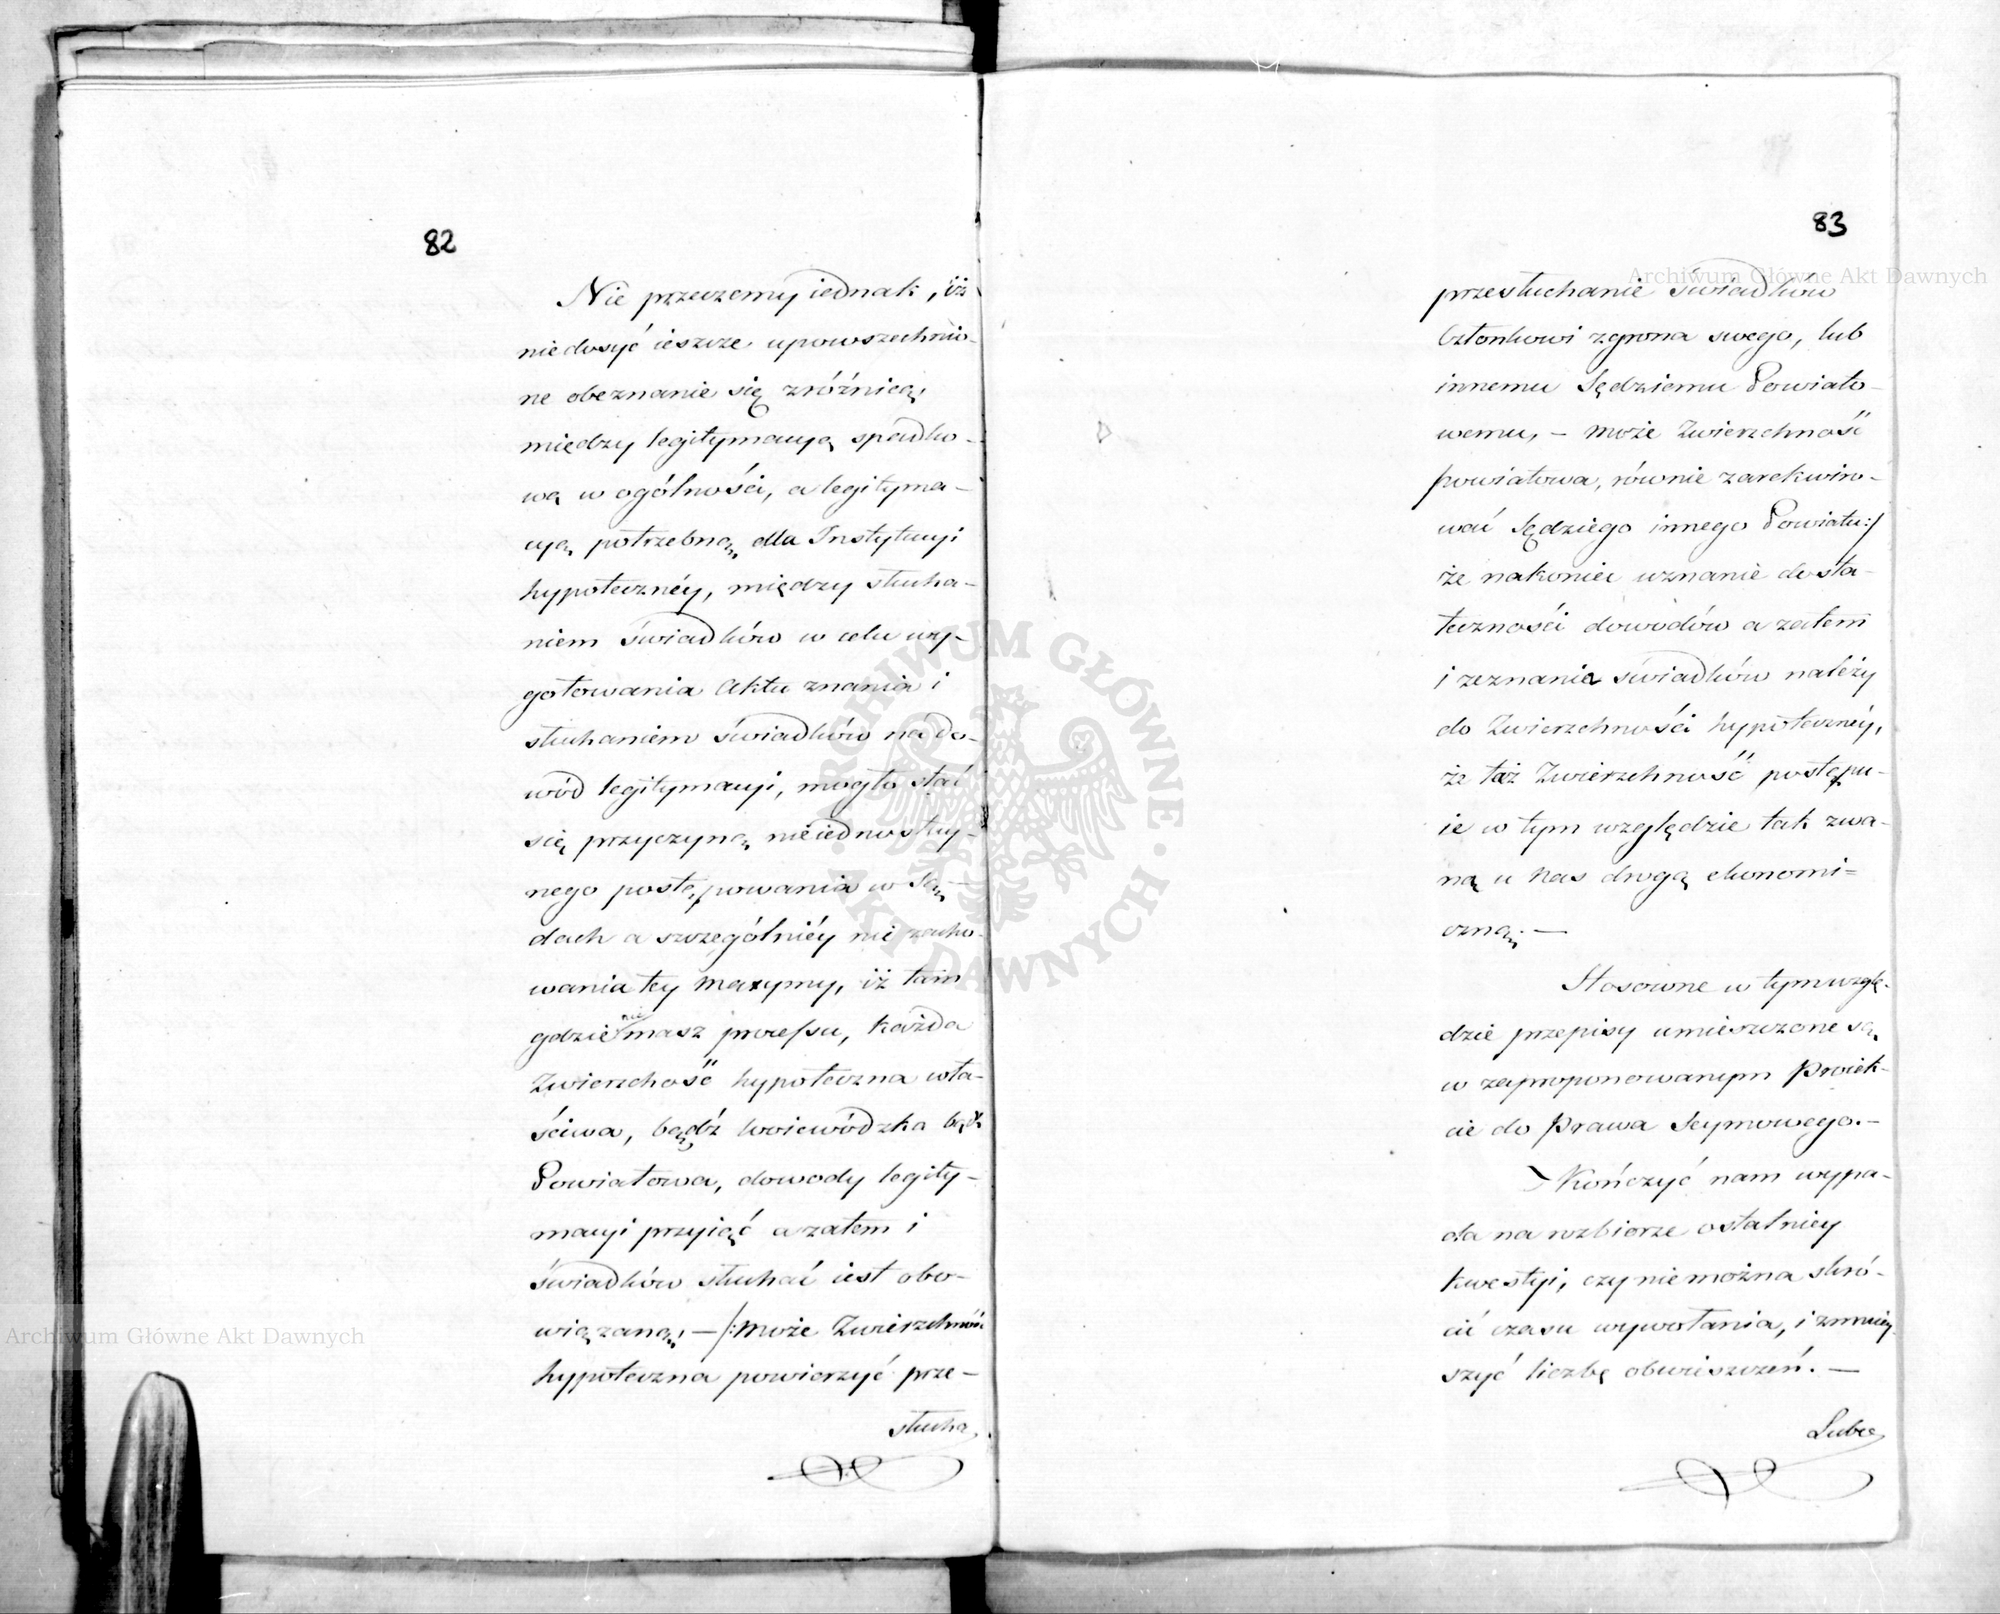 82
Nie przeczemy iednak, iż
niedosyć ieszcze upowszechnio-
ne obeznanie się z różnicą,
między legitymacyą spadko-
wą w ogólności, a legityma-
cyą potrzebną dla Instytucyi
hypotecznéy, między słucha-
niem świadków w celu wy-
gotowania Aktu znania i
słuchaniem świadków na do-
wód legitymacyi, mogło stać
się przyczyną nieiednostay-
nego postępowania w Są-
dach a szczególniéy nie zacho-
wania tey maxymy, iż tam
gdzie nie masz processu, każda
Zwierzchość hypoteczna wła-
ściwa, bądź Woiewódzka bądź
Powiatowa, dowody legity-
macyi przyiąć a zatem i
świadków słuchać iest obo-
wiązaną, — /: może Zwierzchność
hypoteczna powierzyć prze-
słucha
83
przesłuchanie świadków
Członkowi z grona swego, lub
innemu Sędziemu Powiato-
wemu, — może Zwierzchność
powiatowa, równie zarekwiro-
wać Sędziego innego Powiatu :/
że nakoniec uznanie dosta-
teczności dowodów a zatem
i zeznania świadków należy
do Zwierzchności hypotecznéy,
że taż Zwierzchność postępu-
ie w tym względzie tak zwa-
ną u nas drogą ekonomi=
czną. —
Stosowne w tym wzglę-
dzie przepisy umieszczone są
w zaproponowanym Proiek-
cie do Prawa Seymowego. —
Kończyć nam wypa-
da na rozbiorze ostatniey
kwestyi, czy nie można skró-
cić czasu wywołania, i zmniey-
szyć liczbę obwieszczeń. —
Lubo
Archiwum Główne Akt Dawnych
Archiwum Główne Akt Dawnych
ARCHIWUM GŁÓWNE AKT DAWNYCH